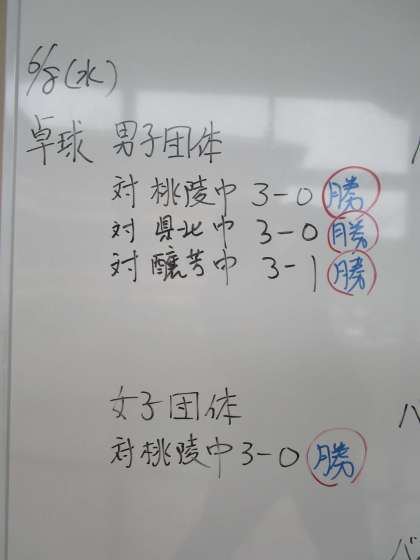 6/8(水)
卓球 男子団体
対 桃陵中 3-0 勝
対 県北中 3-0 勝
対 醸芳中 3-1 勝
女子団体
対 桃陵中 3-0 勝